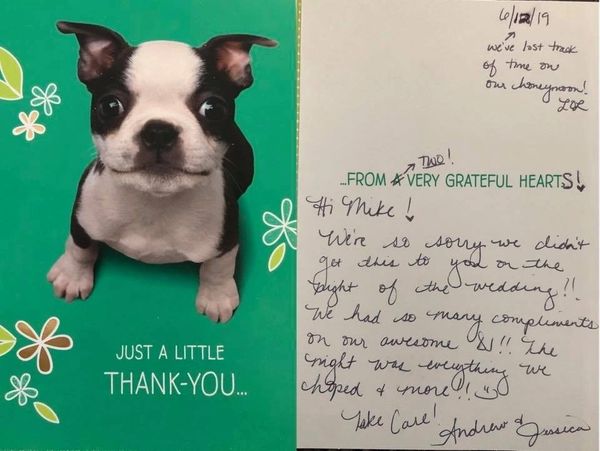 JUST A LITTLE
THANK-YOU...
6/12/19
we've lost track
of time on
our honeymoon!
LOL
TWO!
...FROM A VERY GRATEFUL HEARTS!
Hi Mike!
We're so sorry we didn't
get this to you on the
night of the wedding!!
We had so many compliments
on our awesome DJ!! The
night was everything we
hoped & more!!
Take Care! Andrew & Jessica